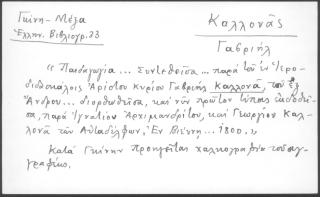 Γκίνη - Μέξα
Ἑλλην. Βιβλιογρ. 23
Καλλονᾶς
Γαβριήλ
« Παιδαγωγία ... Συντεθεῖσα ... παρὰ τοῦ ἐν Ἱερο-
διδασκάλοις Ἀρίστου Κυρίου Γαβριὴλ Καλλονᾶ, τοῦ ἐξ
Ἄνδρου ... διορθωθεῖσα, καὶ νῦν πρῶτον τύποις ἐκδοθεῖ-
σα, παρὰ Ἰγνατίου Ἀρχιμανδρίτου, καὶ Γεωργίου Καλ-
λονᾶ τῶν Αὐταδέλφων, Ἐν Βιέννῃ ... 1800. »
Κατὰ Γκίνην προηγεῖται χαλκογραφία τοῦ συγ-
γραφέως.